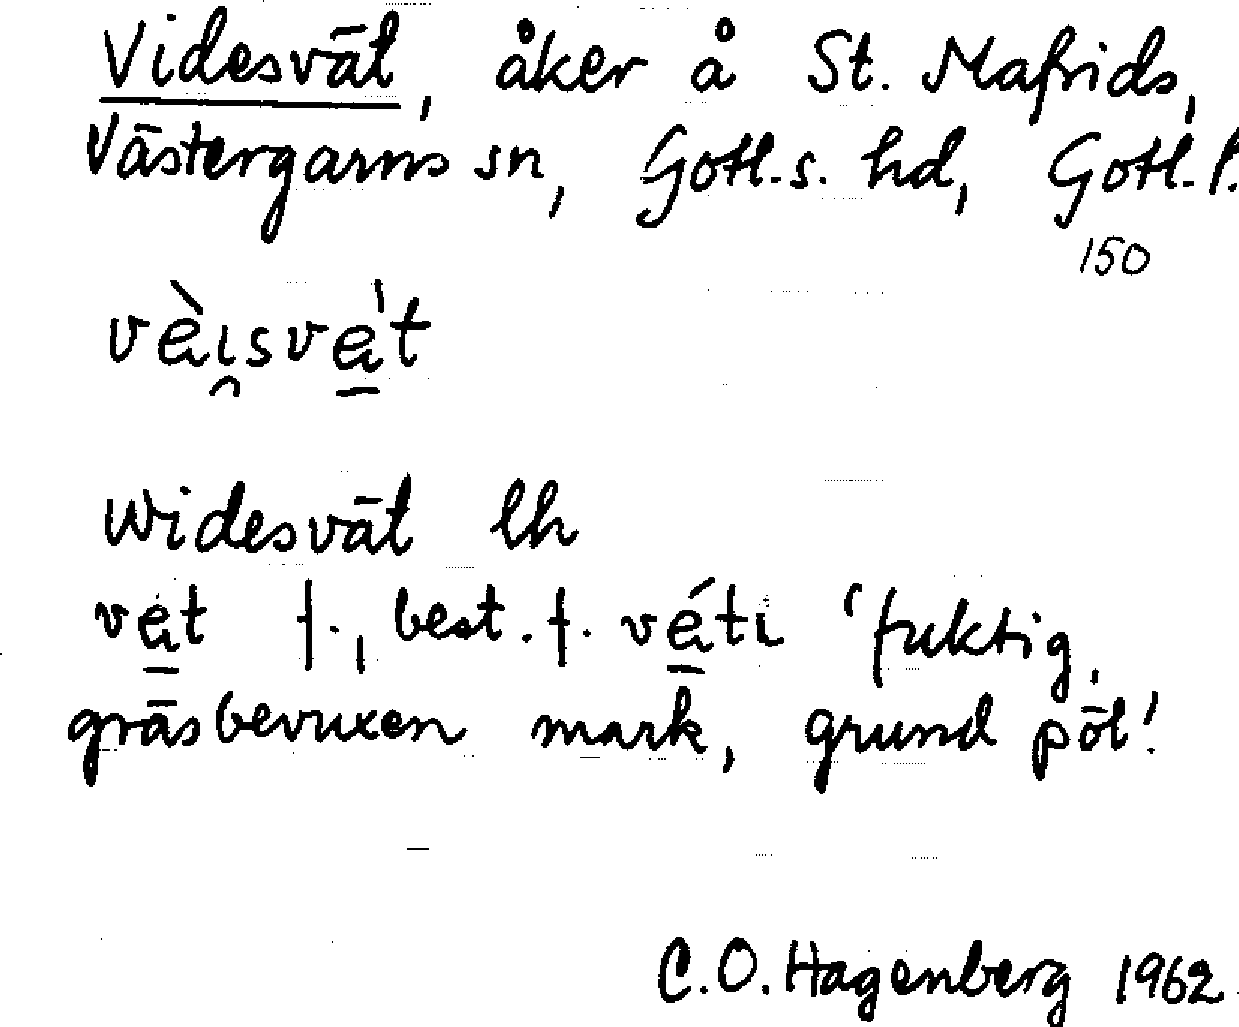 Videsvät, åker å St. Mafrids,
Västergarns sn, Gotl. s. hd, Gotl. l.
150
vä̀i̯svä̠̍t
Widesvät lh
vä̠t f., best. f. vä̠́ti 'fuktig,
gräsbevuxen mark, grund pöl'.
C.O. Hagenberg 1962